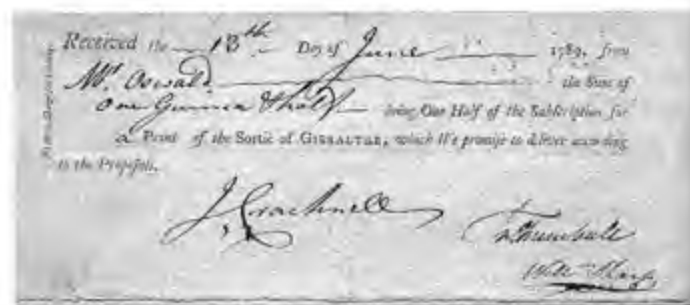 Received the 13th Day of June 1789, from
Mr. Oswald the Sum of
One Guinea & half being One Half of the Subscription for
a Print of the Sortie of GIBRALTAR, which We promise to deliver according
to the Proposals.
J. Cracknell
J. Trumbull
Wm. Sharp